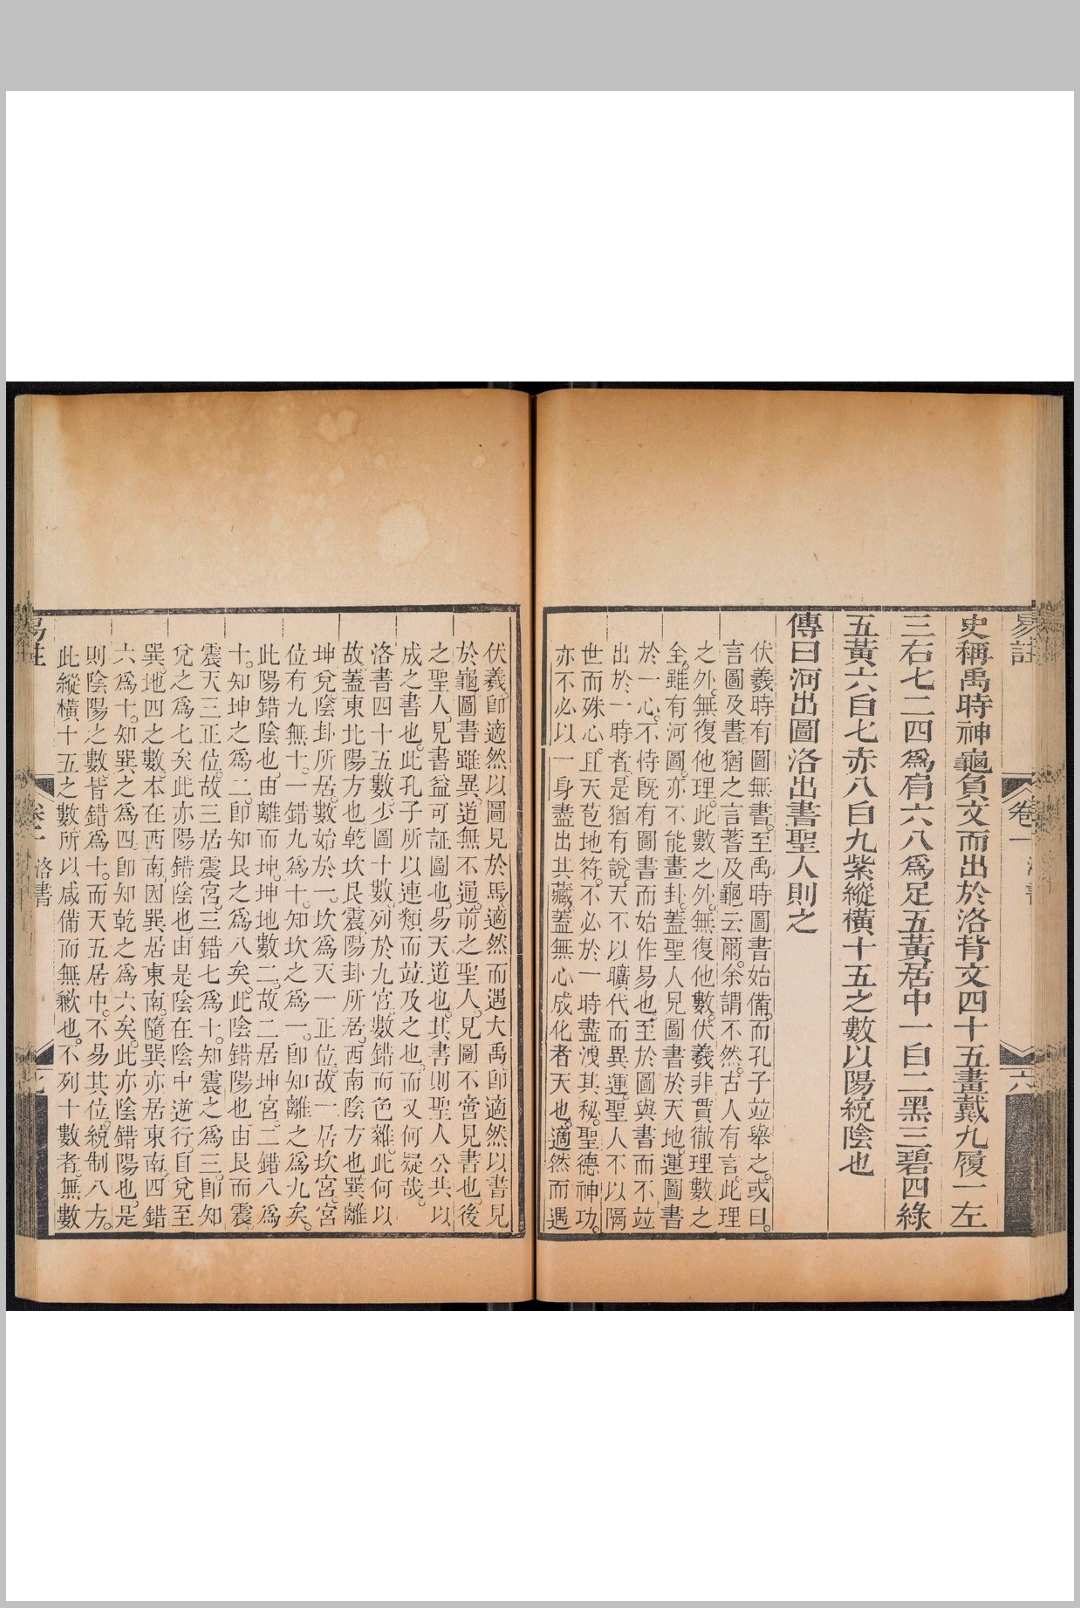 易註
卷一
六
史稱禹時神龜負文而出於洛背文四十五畫戴九履一左
三右七二四爲肩六八爲足五黃居中一白二黑三碧四綠
五黃六白七赤八白九紫縱橫十五之數以陽統陰也
傳曰河出圖洛出書聖人則之
伏羲時有圖無書。至禹時圖書始備。而孔子竝舉之。或曰。
言圖及書。猶之言蓍及龜云爾。余謂不然。古人有言。此理
之外。無復他理。此數之外。無復他數。伏羲非貫徹理數之
全。雖有河圖。亦不能畫卦。蓋聖人見圖書於天地。運圖書
於一心。不恃旣有圖書而始作易也。至於圖與書而不竝
出於一時者。是猶有說。天不以曠代而異運。聖人不以隔
世而殊心。且天苞地符。不必於一時盡洩其秘。聖德神功。
亦不必以一身盡出其藏。蓋無心成化者天也。適然而遇
伏羲。卽適然以圖見於馬。適然而遇大禹。卽適然以書見
於龜。圖書雖異。道無不通。前之聖人。見圖不啻見書也。後
之聖人。見書益可証圖也。易天道也。其書則聖人公共以
成之書也。此孔子所以連類而竝及之也。而又何疑哉。
洛書四十五數。少圖十數。列於九宮。數錯而色雜。此何以
故。蓋東北陽方也。乾坎艮震陽卦所居。西南陰方也。巽離
坤兌陰卦所居。數始於一。坎爲天一正位。故一居坎宮。宮
位有九無十。一錯九爲十。知坎之爲一。卽知離之爲九矣。
此陽錯陰也。由離而坤。坤地數二。故二居坤宮。二錯八爲
十。知坤之爲二。卽知艮之爲八矣。此陰錯陽也。由艮而震
震天三正位。故三居震宮。三錯七爲十。知震之爲三。卽知
兌之爲七矣。此亦陽錯陰也。由是陰在陰中逆行。自兌至
巽。地四之數。本在西南。因巽居東南。隨巽亦居東南。四錯
六爲十。知巽之爲四。卽知乾之爲六矣。此亦陰錯陽也。是
則陰陽之數。皆錯爲十。而天五居中。不易其位。統制八方。
此縱橫十五之數。所以咸備而無歉也。不列十數者。無數
卷一
洛書